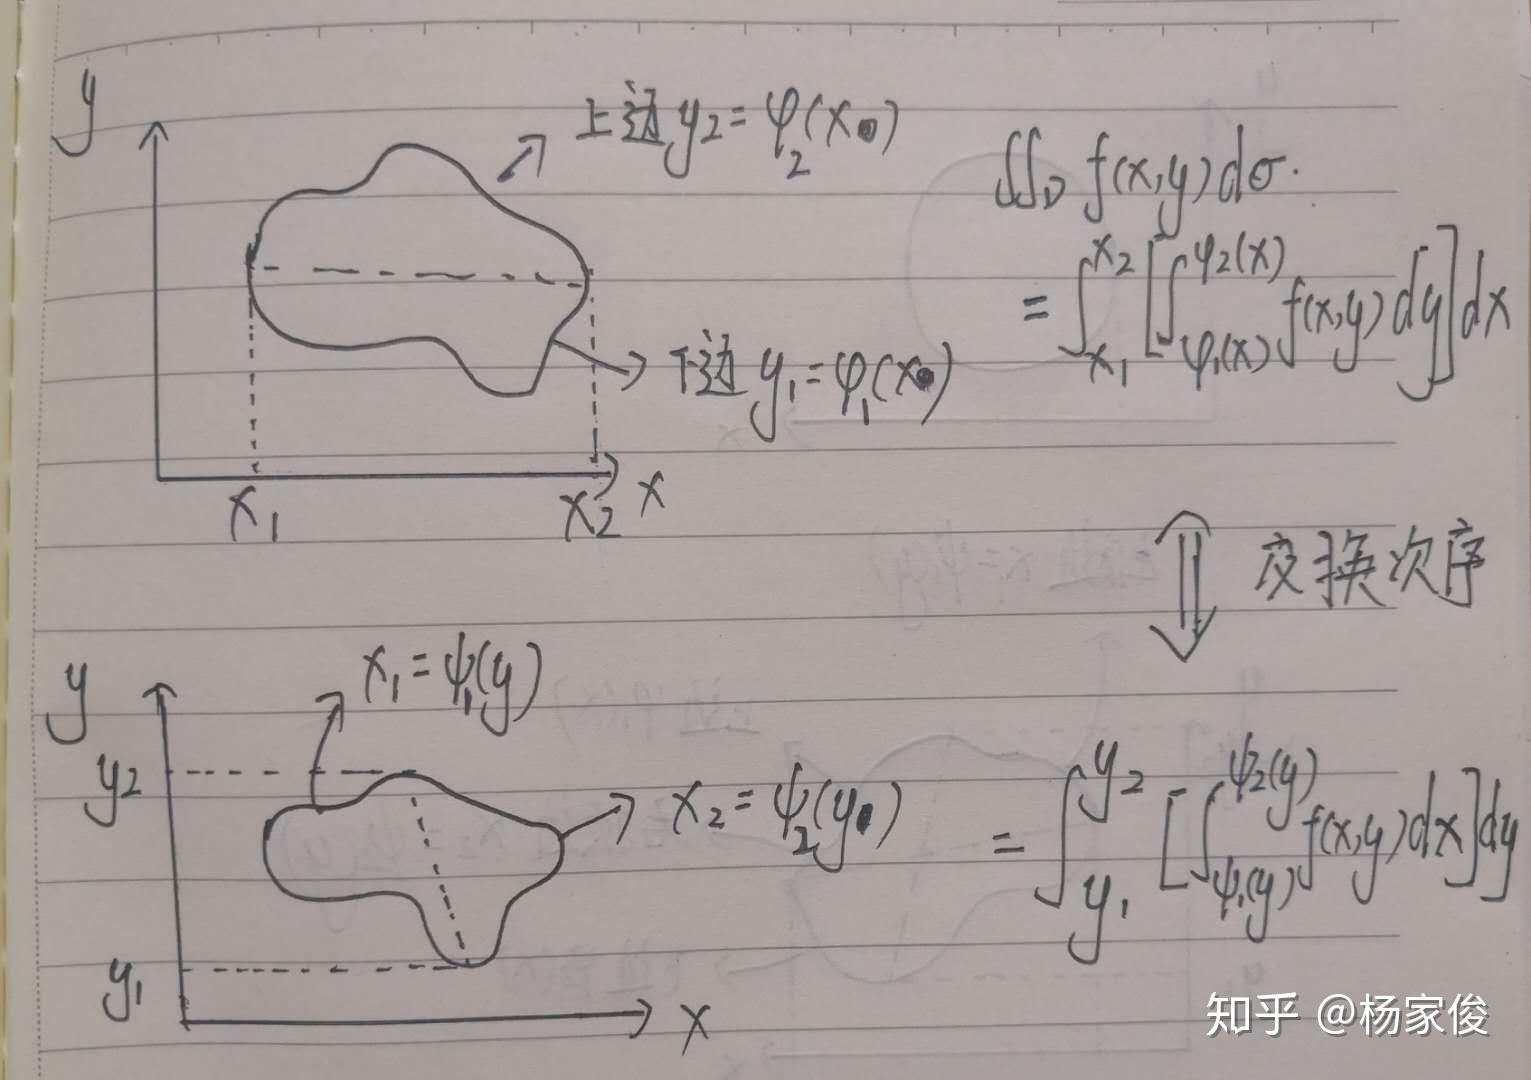 y
上边 y₂ = φ₂(x)
∬_D f(x,y)dσ.
= ∫_{x₁}^{x₂} [∫_{φ₁(x)}^{φ₂(x)} f(x,y)dy]dx
下边 y₁ = φ₁(x)
x₁
x₂
x
变换次序
x₁ = ψ₁(y)
y
y₂
x₂ = ψ₂(y)
= ∫_{y₁}^{y₂} [∫_{ψ₁(y)}^{ψ₂(y)} f(x,y)dx]dy
y₁
x
知乎 @杨家俊